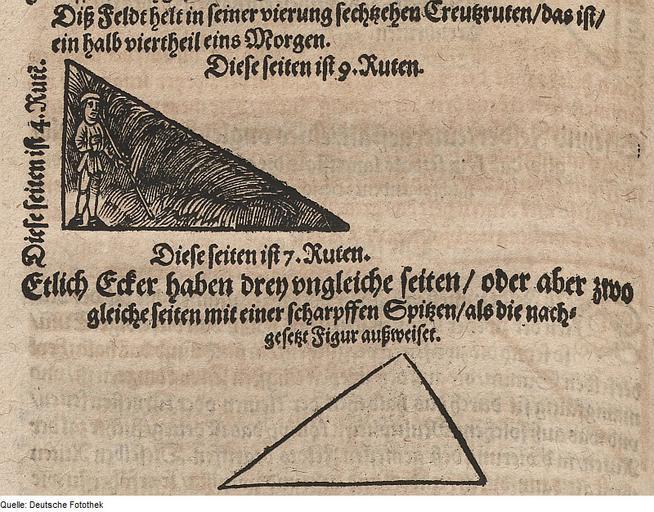 Diß Feldt helt in seiner vierung sechtzehen Creutzruten/das ist/
ein halb viertheil eins Morgen.
Diese seiten ist 9. Ruten.
Diese seiten ist 4. Rutē.
Diese seiten ist 7. Ruten.
Etlich Ecker haben drey vngleiche seiten/ oder aber zwo
gleiche seiten mit einer scharpffen Spitzen/als die nach-
gesetzt Figur außweiset.
Quelle: Deutsche Fotothek